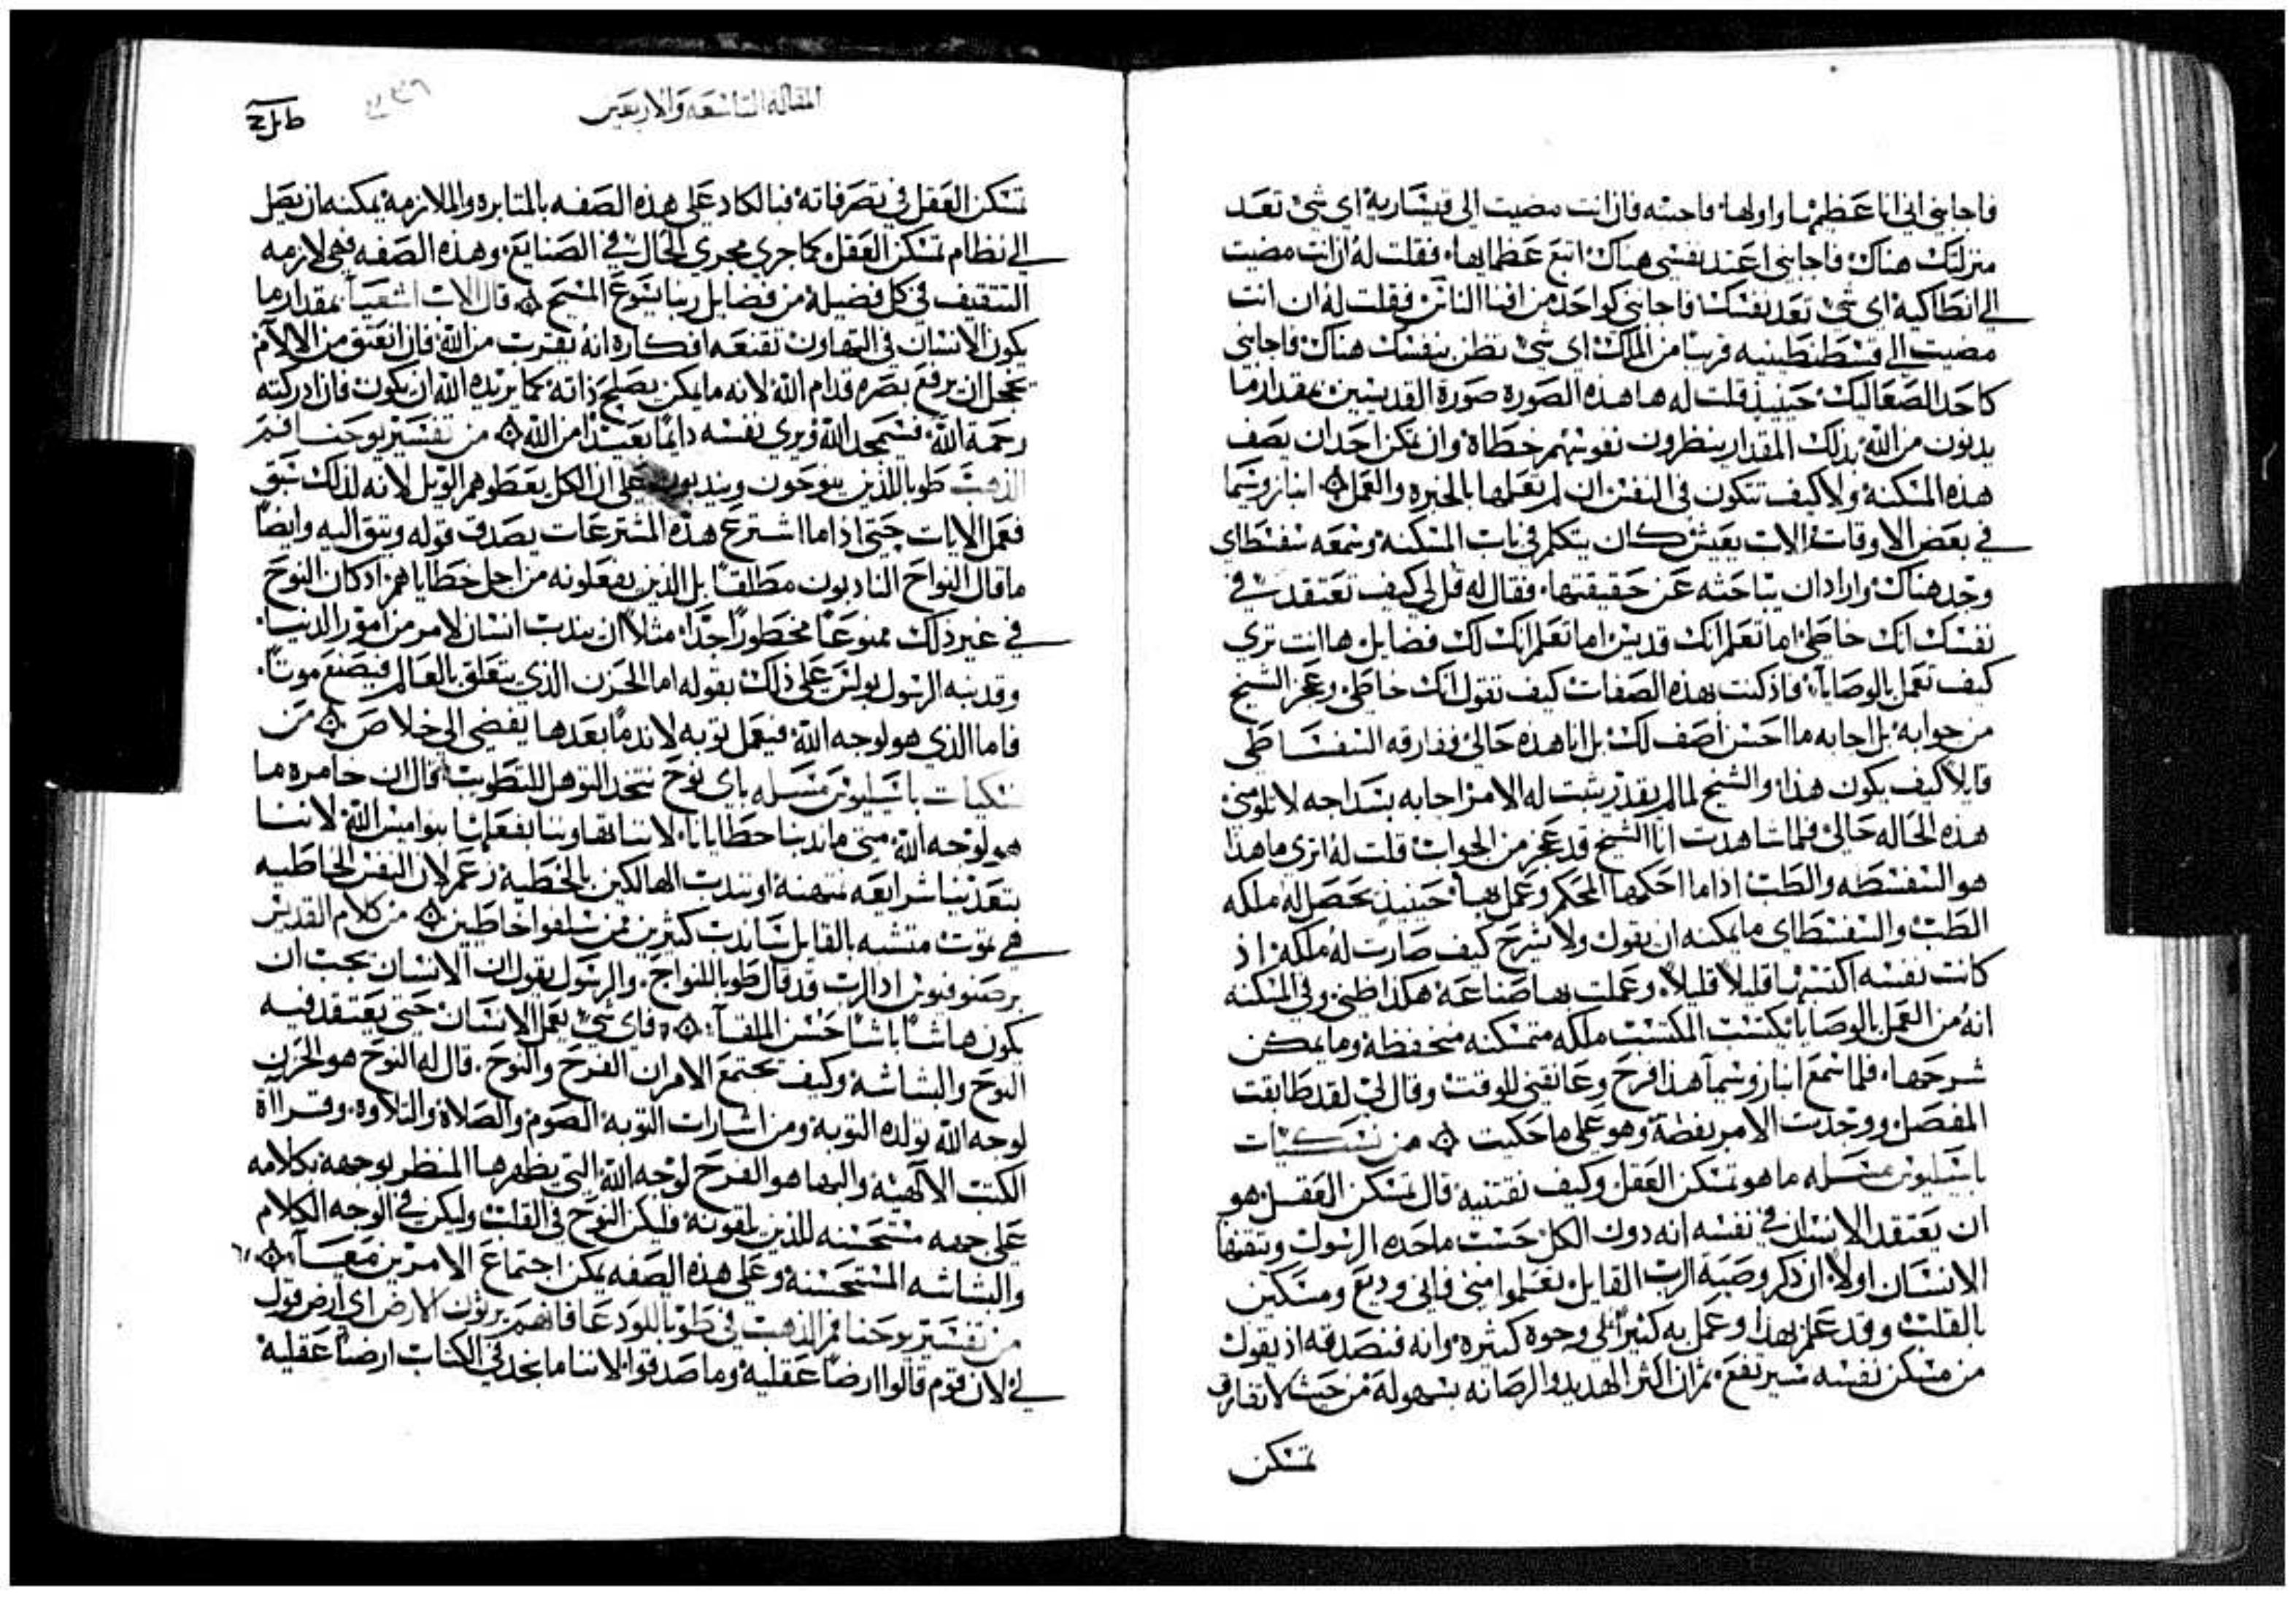 فاجابني اني انا عظيمها واولها، فاجبته فان انت مضيت الى قيساريه اي شي تعد
منزلتك هناك، فاجابني اعتد نفسي هناك اتبع عظماها، فقلت له ان انت مضيت
الى انطاكيه اي شي تعد نفسك، فاجابني كواحد من افنا الناس، فقلت له ان انت
مضيت الى قسطنطينيه قريبا من الملك اي شي تظن بنفسك هناك، فاجابني
كاحد الصعاليك، حينيذ قلت له ها هذه الصوره صورة القديسين، بمقدار ما
يدنون من الله بذلك المقدار ينظرون نفوسهم خطاة، وان تكن احد ان يصف
هذه المسكنة ولا كيف تتكون في النفس ان لم يعلمها بالخبره والعمل ۞ انبا زوسيما
في بعض الاوقات الاب يعيش كان يتكلم في باب المسكنه وسمعه سفسطاي
وجد هناك وارادان يباحثه عن حقيقتها، فقال له قل لي كيف تعتقد في
نفسك انك خاطي، اما تعلم انك قديس، اما تعلم انك لك فضايل، ها انت تري
كيف تعمل بالوصايا، فاذ كنت بهذه الصفات كيف تقول انك خاطي، وعجز الشيخ
من جوابه، بل اجابه ما احسن اصف لك، بل انا هذه حالي، ففارقه السفسطاطي
قايلا كيف يكون هذا، والشيخ لما لم يقدر يثبت له الامر اجابه بسداجه لا تلومني
هذه الحاله حالي، فلما شاهدت انا الشيخ قد عجز من الجواب، قلت له اتري ما هذا
هو السفسطه والطب، اذا ما احكمها المحكم وعمل بها، حينيذ يحصل له ملكه
الطب والسفسطاي ما يمكنه ان يقول ولا يشرح كيف صارت له ملكة، اذ
كانت نفسه اكتستها قليلا قليلا، وعملت بها صناعة، هكذا ظني، وفي المسكنه
انه من العمل بالوصايا يكتسب المكتسب ملكه متمسكنه منحفظة، وما يمكن
شرحها، فلما سمع انبا زوسيما هذا فرح وعانقني للوقت، وقال لي لقد طابقت
المفصل، ووجدت الامر بفطنة وهو على ما حكيت ۞ من نسكيات
باسيليوس مسله ما هو تمسكن العقل وكيف نقتنيه، قال تمسكن العقل هو
ان يعتقد الانسان في نفسه انه دون الكل حسب ما حده الرسول وتثقيفا
الانسان اولا ان ذكر وصية الرب القايل تعلموا مني فاني وديع ومسكين
بالقلب، وقد علم بهذا وعمل به كثيرا علي وجوه كثيره، وانه فنصدقه اذ يقول
من مسكن نفسه سيرتفع، ثم ان اكثر الهديد والرصانه بسهولة من حيث لا تفارق
تمسكن
المقاله التاسعه والاربعين
تمسكن العقل في تصرفاته، فبالكاد على هذه الصفه بالمتابره والملازمه يمكنه ان يصل
الى نظام تمسكن العقل كما جري مجري الحال في الصنايع، وهذه الصفه فهي لازمه
التثقيف في كل فضيلة من فضايل ربنا يسوع المسيح ۞ قال الاب اشعيا بمقدار ما
يكون الانسان في التهاون تقنعه افكاره انه يقترب من الله، فان انعتق من الالام
يخجل ان يرفع بصره قدام الله لانه ما يمكن يصلح ذاته كما يريده الله ان يكون، فان ادركته
رحمة الله، فسيمجد الله ويري نفسه دايما بعيدا من الله ۞ من تفسير يوحنا فم
الذهب طوبا للذين ينوحون ويندبون على ان الكل يعطوهم الويل، لانه لذلك سبق
فعمل الايات حتى اذا ما اشترع هذه المشترعات يصدق قوله ويثق اليه، وايضا
ما قال النواح النادبون مطلقا بل الذين يفعلونه من اجل خطاياهم، اذ كان النوح
في غير ذلك ممنوعا محظورا جدا، مثلا ان يندب انسان لامر من امور الدنيا،
وقد نبه الرسول بولس على ذلك بقوله اما الحزن الذي يتعلق بالعالم فيصنع موتا،
فاما الذي هو لوجه الله فيعمل توبه لا ندما بعدها يفضي الى خلاص ۞ من
نسكيات باسيليوس مسله باي نوح نتخذ التوهل للتطويب، قال ان خامره ما
هو لوجه الله، متى ما ندبنا خطايانا، لاننا تهاوننا بفعلنا بنواميس الله، لاننا
بتعدينا شرايعه نمتهنه، او نندب الهالكين بالخطية، زعم لان النفس الخاطيه
هي تموت، متشبه بالقايل ساندب كثيرين ممن سلفوا خاطيين ۞ من كلام القديس
برصنوفيوس اذا الرب قد قال طوبا للنواح، والرسول يقول ان الانسان يجب ان
يكون هاشا باشا حسن الملقا، ۞ فاي شي يعمل الانسان حتى يعتقد فيه
النوح والبشاشة، وكيف تجتمع الامران الفرح والنوح، قال له النوح هو الحزن
لوجه الله تولده التوبه، ومن اشارات التوبة الصوم والصلاة والتلاوه، وقراآة
الكتب الالهية، والبها هو الفرح لوجه الله التي يظهرها المنظر بوجهه بكلامه
على جهه مستحسنه للذين يلقونه، فليكن النوح في القلب وليكن في الوجه الكلام
والبشاشه المستحسنة، وعلى هذه الصفه يمكن اجتماع الامرين معا، ۞
من تفسير يوحنا فم الذهب في طوبا للودعا فانهم يرثون الارض اي ارض قول
لي، لان قوم قالوا ارضا عقلية، وما صدقوا، لاننا ما نجد في الكتاب ارضا عقليه